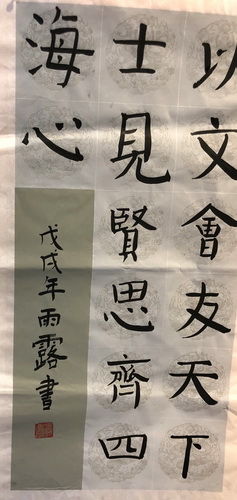 以文會友天下
士見賢思齊四
海心
戊戌年雨露書